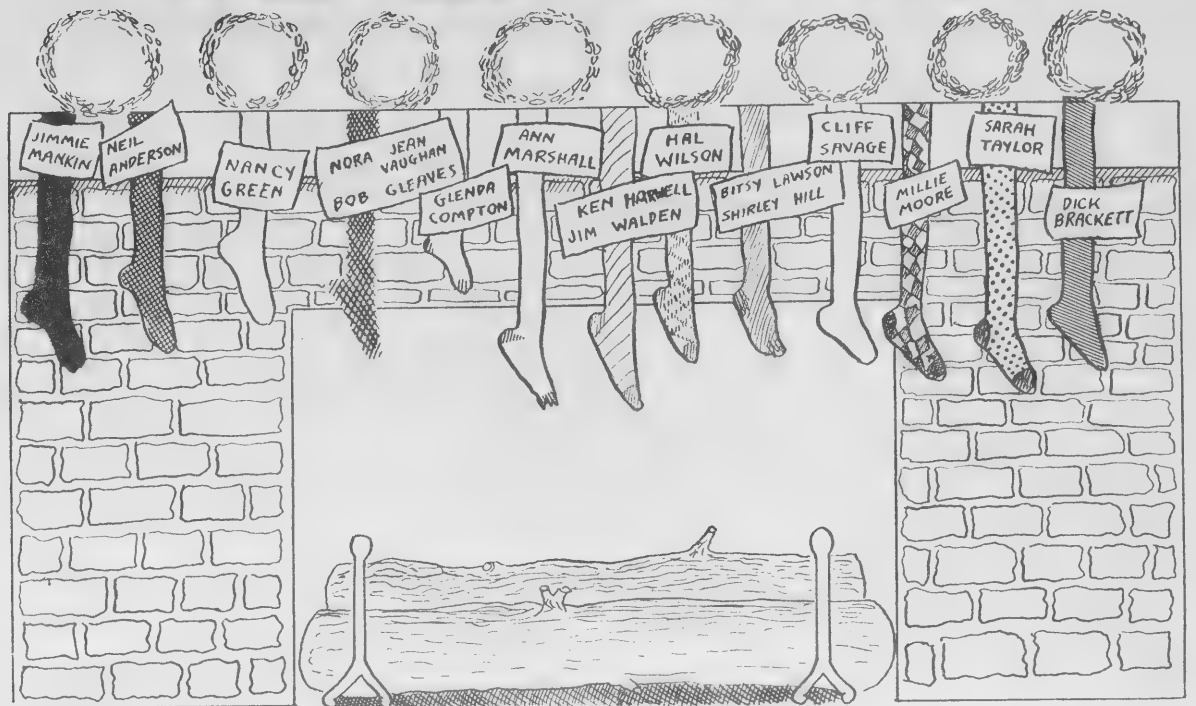 JIMMIE
MANKIN
NEIL
ANDERSON
NANCY
GREEN
NORA JEAN
VAUGHAN
BOB GLEAVES
GLENDA
COMPTON
ANN
MARSHALL
KEN HARWELL
JIM WALDEN
HAL
WILSON
BITSY LAWSON
SHIRLEY HILL
CLIFF
SAVAGE
MILLIE
MOORE
SARAH
TAYLOR
DICK
BRACKETT